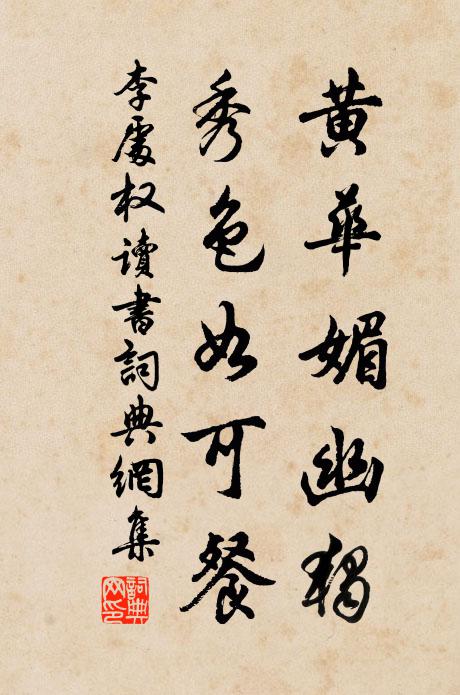 黄華媚幽獨
秀色如可餐
李處权讀書詞典網集
詞典